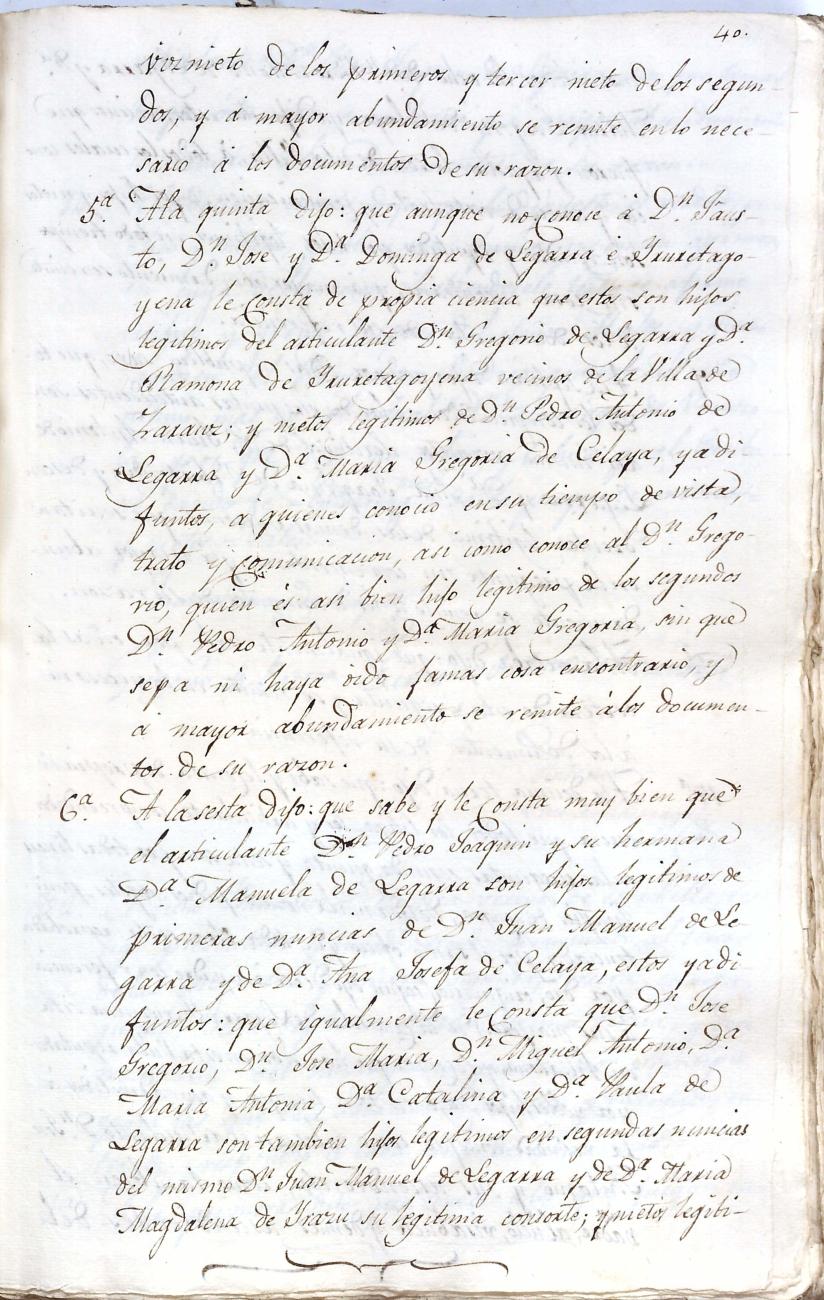 40.
viznieto de los primeros y tercer nieto de los segun-
dos, y á mayor abundamiento se remite en lo nece-
sario á los documentos de su razon.
5.ª A la quinta dijo: que aunque no conoce á D.n Faus-
to, D.n Jose y D.ª Dominga de Legarra é Yruretago-
yena le consta de propia ciencia que estos son hijos
legitimos del articulante D.n Gregorio de Legarra y D.ª
Ramona de Yruretagoyena vecinos de la Villa de
Zarauz; y nietos legitimos de D.n Pedro Antonio de
Legarra y D.ª Maria Gregoria de Celaya, ya di-
funtos, á quienes conoció en su tiempo de vista,
trato y comunicacion, asi como conoce al D.n Grego-
rio, quien és asi bien hijo legitimo de los segundos
D.n Pedro Antonio y D.ª Maria Gregoria, sin que
sepa ni haya oido jamas cosa en contrario, y
á mayor abundamiento se remite á los documen-
tos de su razon.
6.ª A la sesta dijo: que sabe y le consta muy bien que
el articulante D.n Pedro Joaquin y su hermana
D.ª Manuela de Legarra son hijos legitimos de
primeras nuncias de D.n Juan Manuel de Le-
garra y de D.ª Ana Josefa de Celaya, estos ya di-
funtos: que igualmente le consta que D.n Jose
Gregorio, D.n Jose Maria, D.n Miguel Antonio, D.ª
Maria Antonia, D.ª Catalina y D.ª Paula de
Legarra son tambien hijos legitimos en segundas nuncias
del mismo D.n Juan Manuel de Legarra y de D.ª Maria
Magdalena de Yrazu su legitima consorte; y nietos legiti-